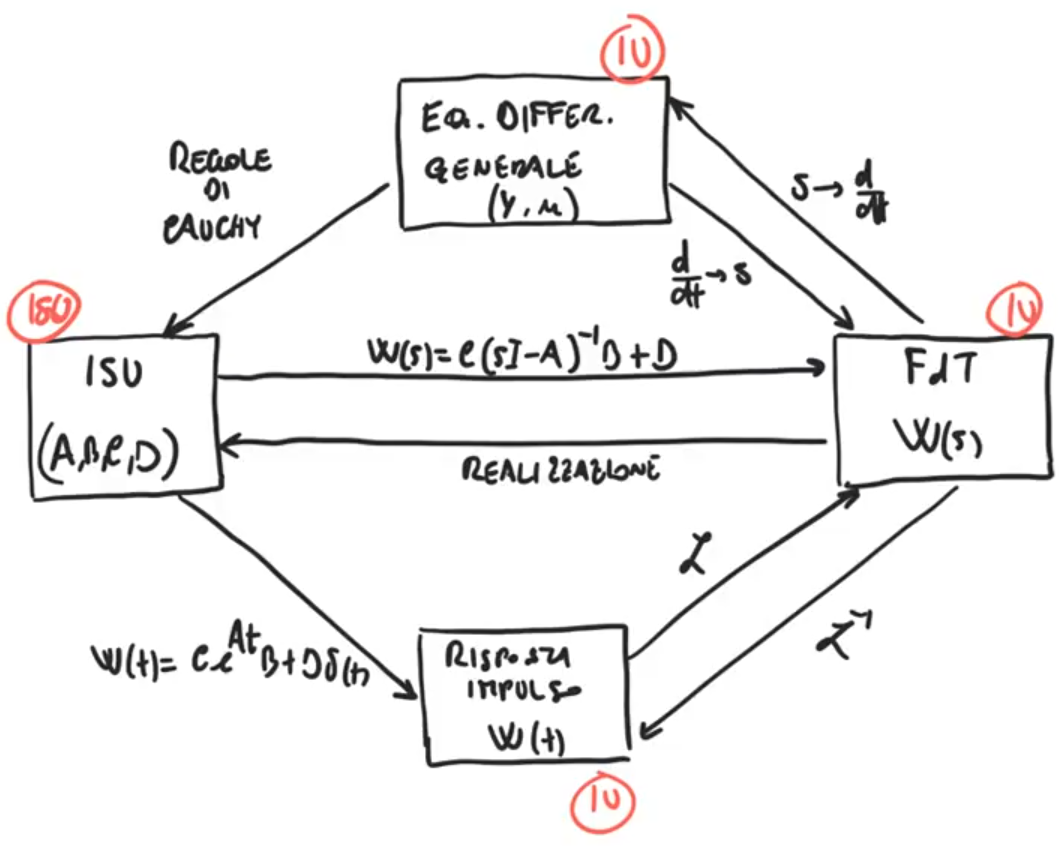 IU
EQ. DIFFER.
GENERALE
(y, u)
REGOLE
DI
CAUCHY
s → d/dt
d/dt → s
ISU
IU
ISU
(A,B,C,D)
W(s) = C(sI-A)⁻¹B + D
FdT
W(s)
REALIZZAZIONE
ℒ
ℒ⁻¹
W(t) = Ce^{At}B + Dδ(t)
RISPOSTA
IMPULSO
W(t)
IU